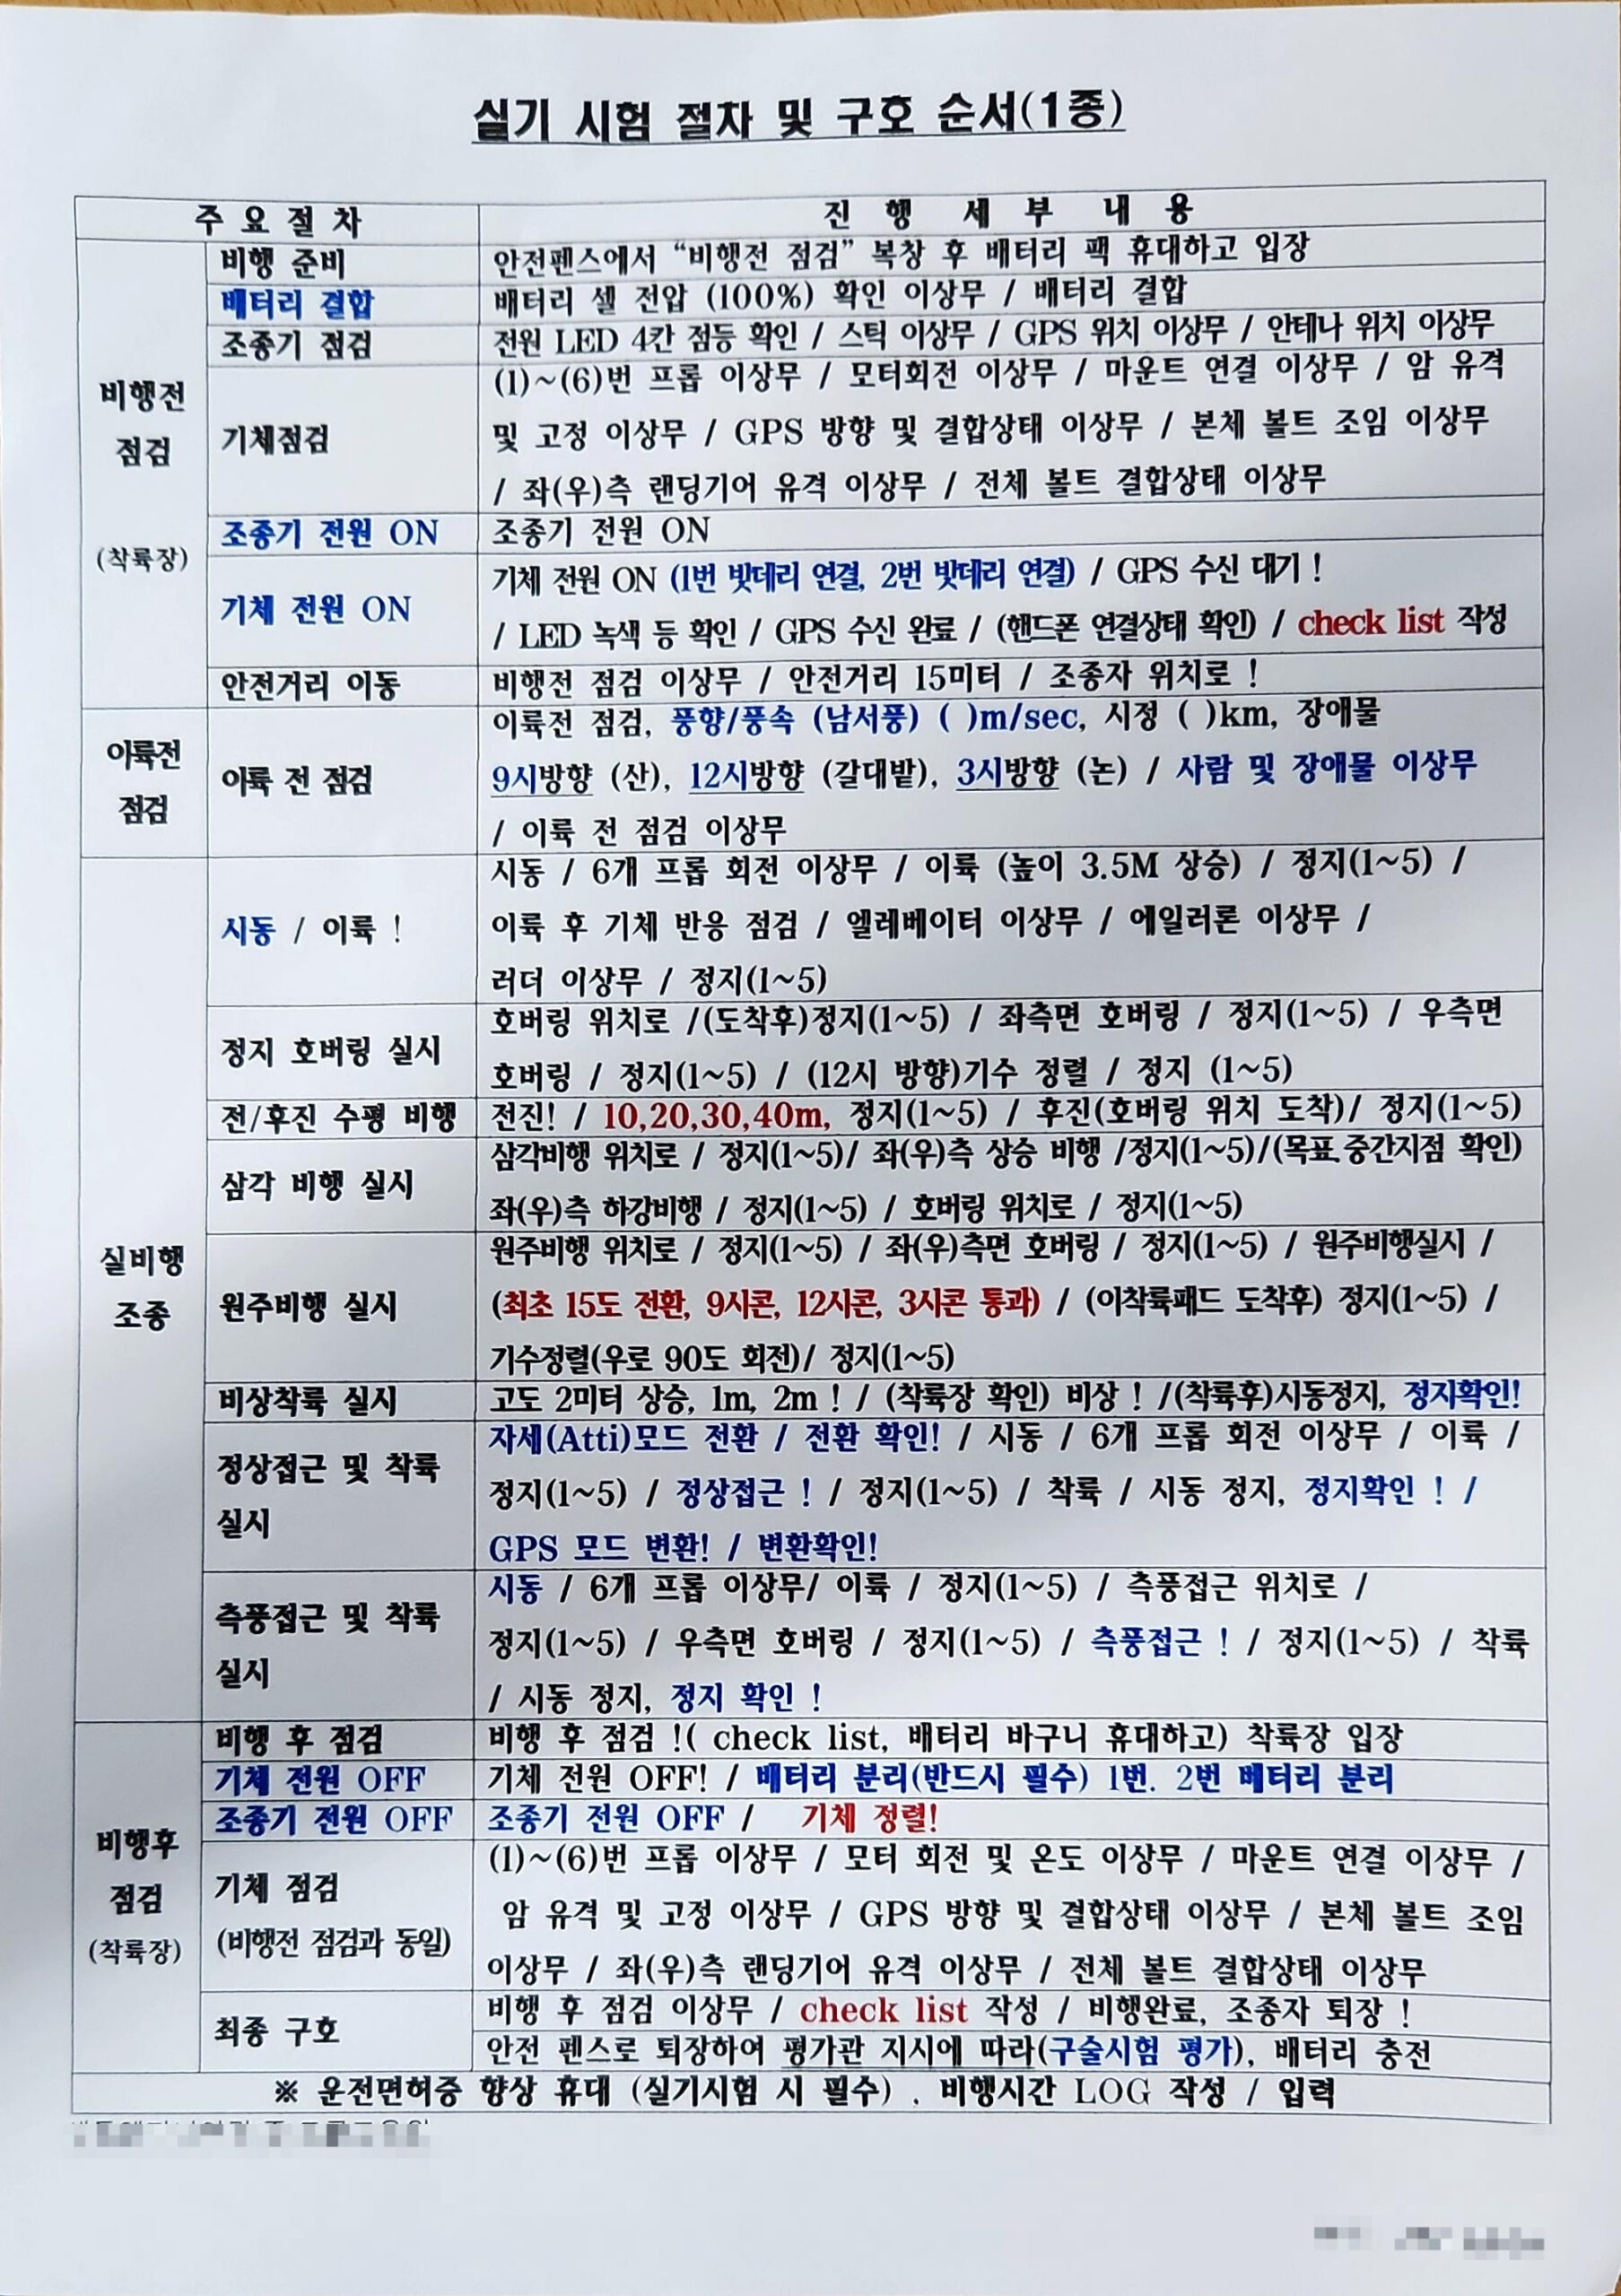 실기 시험 절차 및 구호 순서(1종)
주 요 절 차
진 행 세 부 내 용
비행전
점검
(착륙장)
비행 준비
안전펜스에서 “비행전 점검” 복창 후 배터리 팩 휴대하고 입장
배터리 결합
배터리 셀 전압 (100%) 확인 이상무 / 배터리 결합
조종기 점검
전원 LED 4칸 점등 확인 / 스틱 이상무 / GPS 위치 이상무 / 안테나 위치 이상무
기체점검
(1)~(6)번 프롭 이상무 / 모터회전 이상무 / 마운트 연결 이상무 / 암 유격
및 고정 이상무 / GPS 방향 및 결합상태 이상무 / 본체 볼트 조임 이상무
/ 좌(우)측 랜딩기어 유격 이상무 / 전체 볼트 결합상태 이상무
조종기 전원 ON
조종기 전원 ON
기체 전원 ON
기체 전원 ON (1번 밧데리 연결, 2번 밧데리 연결) / GPS 수신 대기 !
/ LED 녹색 등 확인 / GPS 수신 완료 / (핸드폰 연결상태 확인) / check list 작성
안전거리 이동
비행전 점검 이상무 / 안전거리 15미터 / 조종자 위치로 !
이륙전
점검
이륙 전 점검
이륙전 점검, 풍향/풍속 (남서풍) ( )m/sec, 시정 ( )km, 장애물
9시방향 (산), 12시방향 (갈대밭), 3시방향 (논) / 사람 및 장애물 이상무
/ 이륙 전 점검 이상무
실비행
조종
시동 / 이륙 !
시동 / 6개 프롭 회전 이상무 / 이륙 (높이 3.5M 상승) / 정지(1~5) /
이륙 후 기체 반응 점검 / 엘레베이터 이상무 / 에일러론 이상무 /
러더 이상무 / 정지(1~5)
정지 호버링 실시
호버링 위치로 /(도착후)정지(1~5) / 좌측면 호버링 / 정지(1~5) / 우측면
호버링 / 정지(1~5) / (12시 방향)기수 정렬 / 정지 (1~5)
전/후진 수평 비행
전진! / 10,20,30,40m, 정지(1~5) / 후진(호버링 위치 도착)/ 정지(1~5)
삼각 비행 실시
삼각비행 위치로 / 정지(1~5)/ 좌(우)측 상승 비행 /정지(1~5)/(목표.중간지점 확인)
좌(우)측 하강비행 / 정지(1~5) / 호버링 위치로 / 정지(1~5)
원주비행 실시
원주비행 위치로 / 정지(1~5) / 좌(우)측면 호버링 / 정지(1~5) / 원주비행실시 /
(최초 15도 전환, 9시콘, 12시콘, 3시콘 통과) / (이착륙패드 도착후) 정지(1~5) /
기수정렬(우로 90도 회전)/ 정지(1~5)
비상착륙 실시
고도 2미터 상승, 1m, 2m ! / (착륙장 확인) 비상 ! /(착륙후)시동정지, 정지확인!
정상접근 및 착륙
실시
자세(Atti)모드 전환 / 전환 확인! / 시동 / 6개 프롭 회전 이상무 / 이륙 /
정지(1~5) / 정상접근 ! / 정지(1~5) / 착륙 / 시동 정지, 정지확인 ! /
GPS 모드 변환! / 변환확인!
측풍접근 및 착륙
실시
시동 / 6개 프롭 이상무/ 이륙 / 정지(1~5) / 측풍접근 위치로 /
정지(1~5) / 우측면 호버링 / 정지(1~5) / 측풍접근 ! / 정지(1~5) / 착륙
/ 시동 정지, 정지 확인 !
비행후
점검
(착륙장)
비행 후 점검
비행 후 점검 !( check list, 배터리 바구니 휴대하고) 착륙장 입장
기체 전원 OFF
기체 전원 OFF! / 배터리 분리(반드시 필수) 1번. 2번 베터리 분리
조종기 전원 OFF
조종기 전원 OFF / 기체 정렬!
기체 점검
(비행전 점검과 동일)
(1)~(6)번 프롭 이상무 / 모터 회전 및 온도 이상무 / 마운트 연결 이상무 /
암 유격 및 고정 이상무 / GPS 방향 및 결합상태 이상무 / 본체 볼트 조임
이상무 / 좌(우)측 랜딩기어 유격 이상무 / 전체 볼트 결합상태 이상무
최종 구호
비행 후 점검 이상무 / check list 작성 / 비행완료, 조종자 퇴장 !
안전 펜스로 퇴장하여 평가관 지시에 따라(구술시험 평가), 배터리 충전
※ 운전면허증 항상 휴대 (실기시험 시 필수) . 비행시간 LOG 작성 / 입력